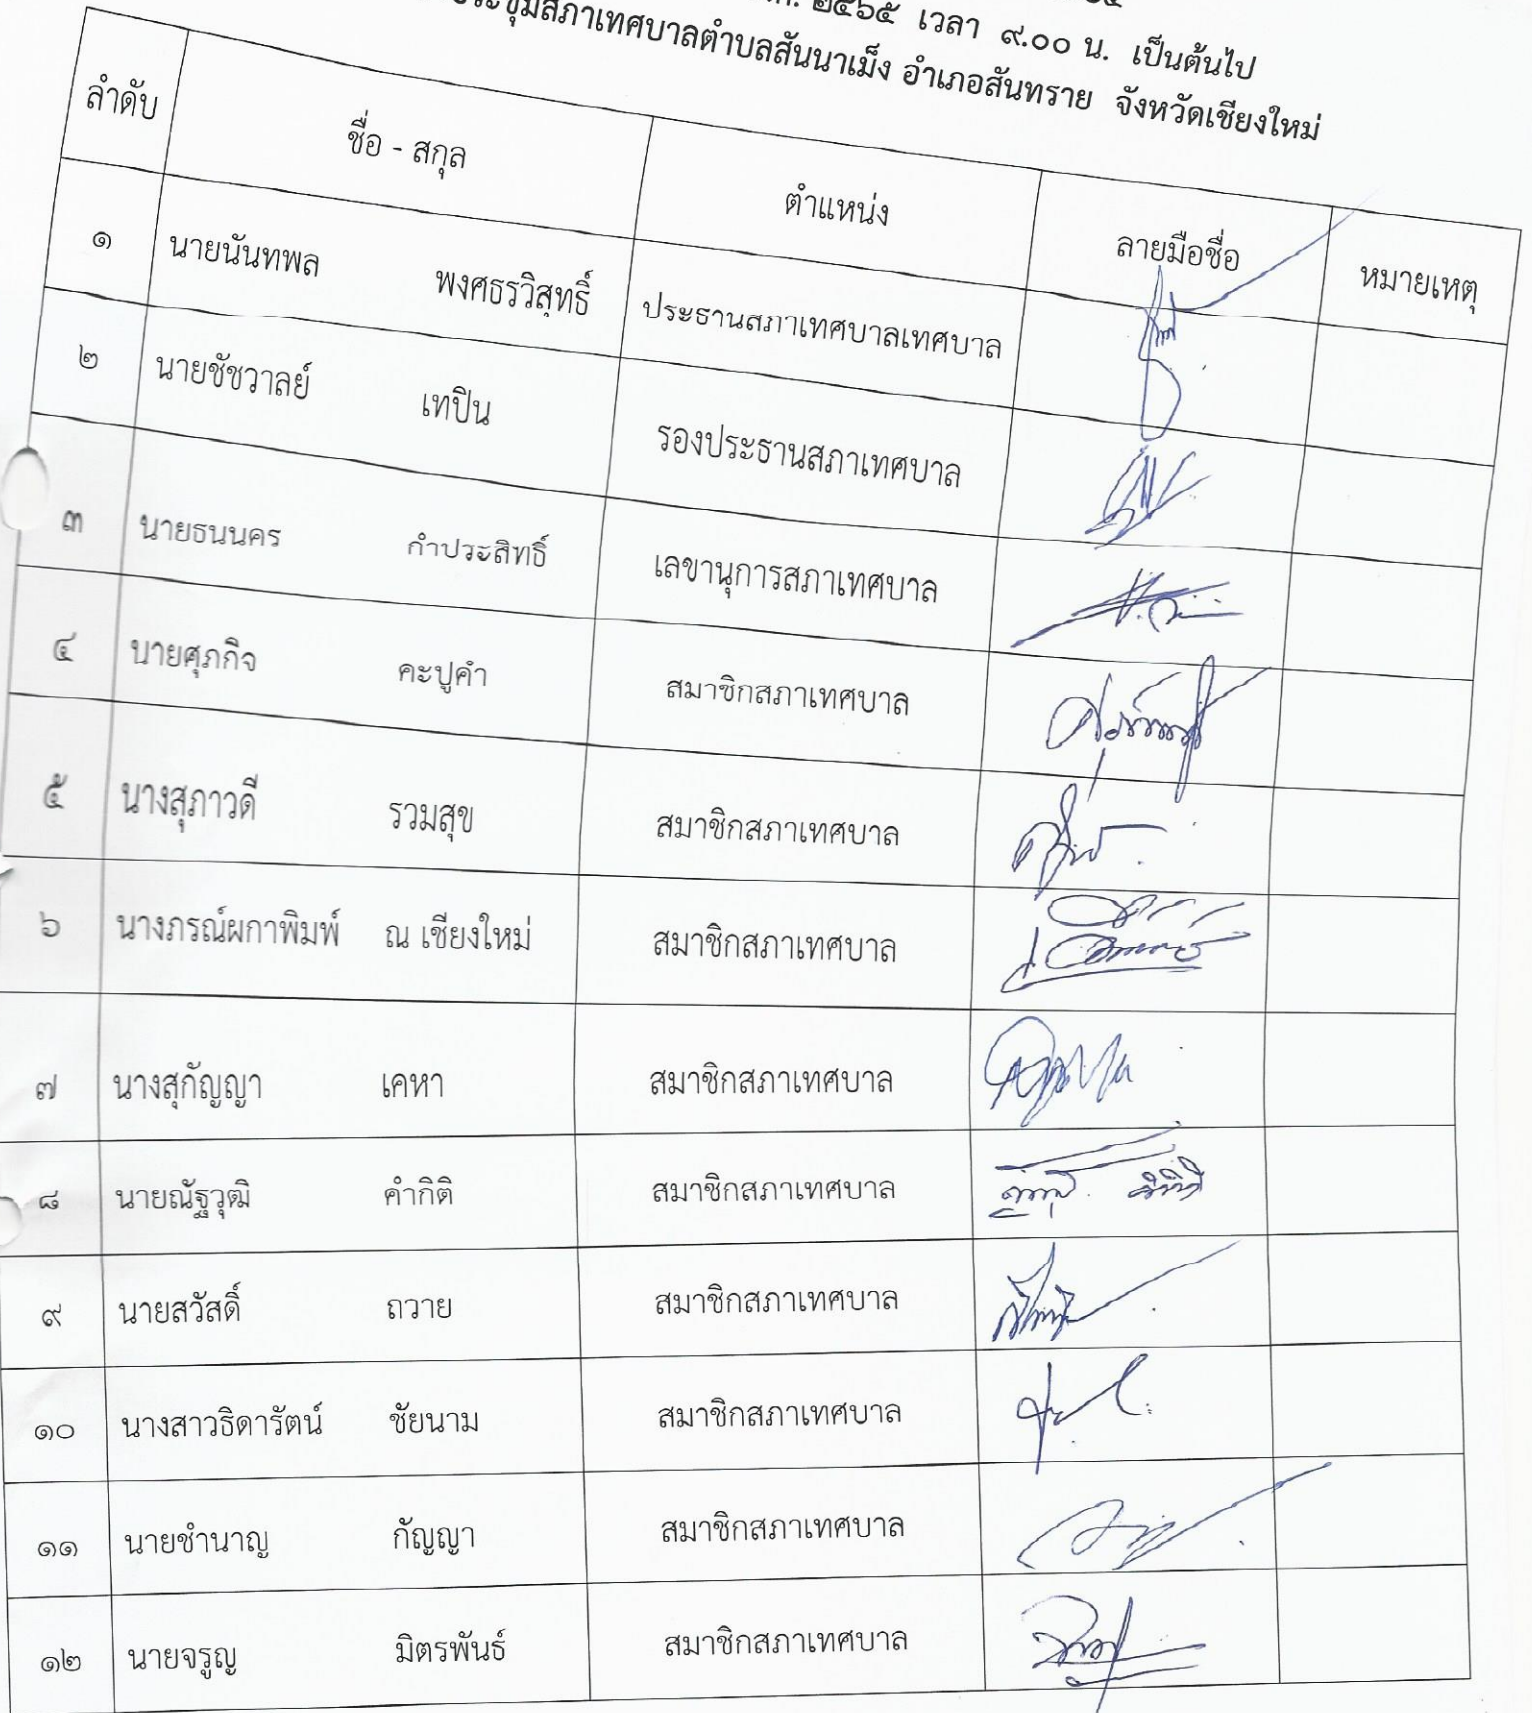 ๒๕๖๕ เวลา ๙.๐๐ น. เป็นต้นไป
ประชุมสภาเทศบาลตำบลสันนาเม็ง อำเภอสันทราย จังหวัดเชียงใหม่
ลำดับ ชื่อ - สกุล ตำแหน่ง ลายมือชื่อ หมายเหตุ
๑ นายนันทพล พงศธรวิสุทธิ์ ประธานสภาเทศบาลเทศบาล
๒ นายชัชวาลย์ เทปิน รองประธานสภาเทศบาล
๓ นายธนนคร กำประสิทธิ์ เลขานุการสภาเทศบาล
๔ นายศุภกิจ คะปูคำ สมาชิกสภาเทศบาล
๕ นางสุภาวดี รวมสุข สมาชิกสภาเทศบาล
๖ นางภรณ์ผกาพิมพ์ ณ เชียงใหม่ สมาชิกสภาเทศบาล
๗ นางสุกัญญา เคหา สมาชิกสภาเทศบาล
๘ นายณัฐวุฒิ คำกิติ สมาชิกสภาเทศบาล
๙ นายสวัสดิ์ ถวาย สมาชิกสภาเทศบาล
๑๐ นางสาวธิดารัตน์ ชัยนาม สมาชิกสภาเทศบาล
๑๑ นายชำนาญ กัญญา สมาชิกสภาเทศบาล
๑๒ นายจรูญ มิตรพันธ์ สมาชิกสภาเทศบาล